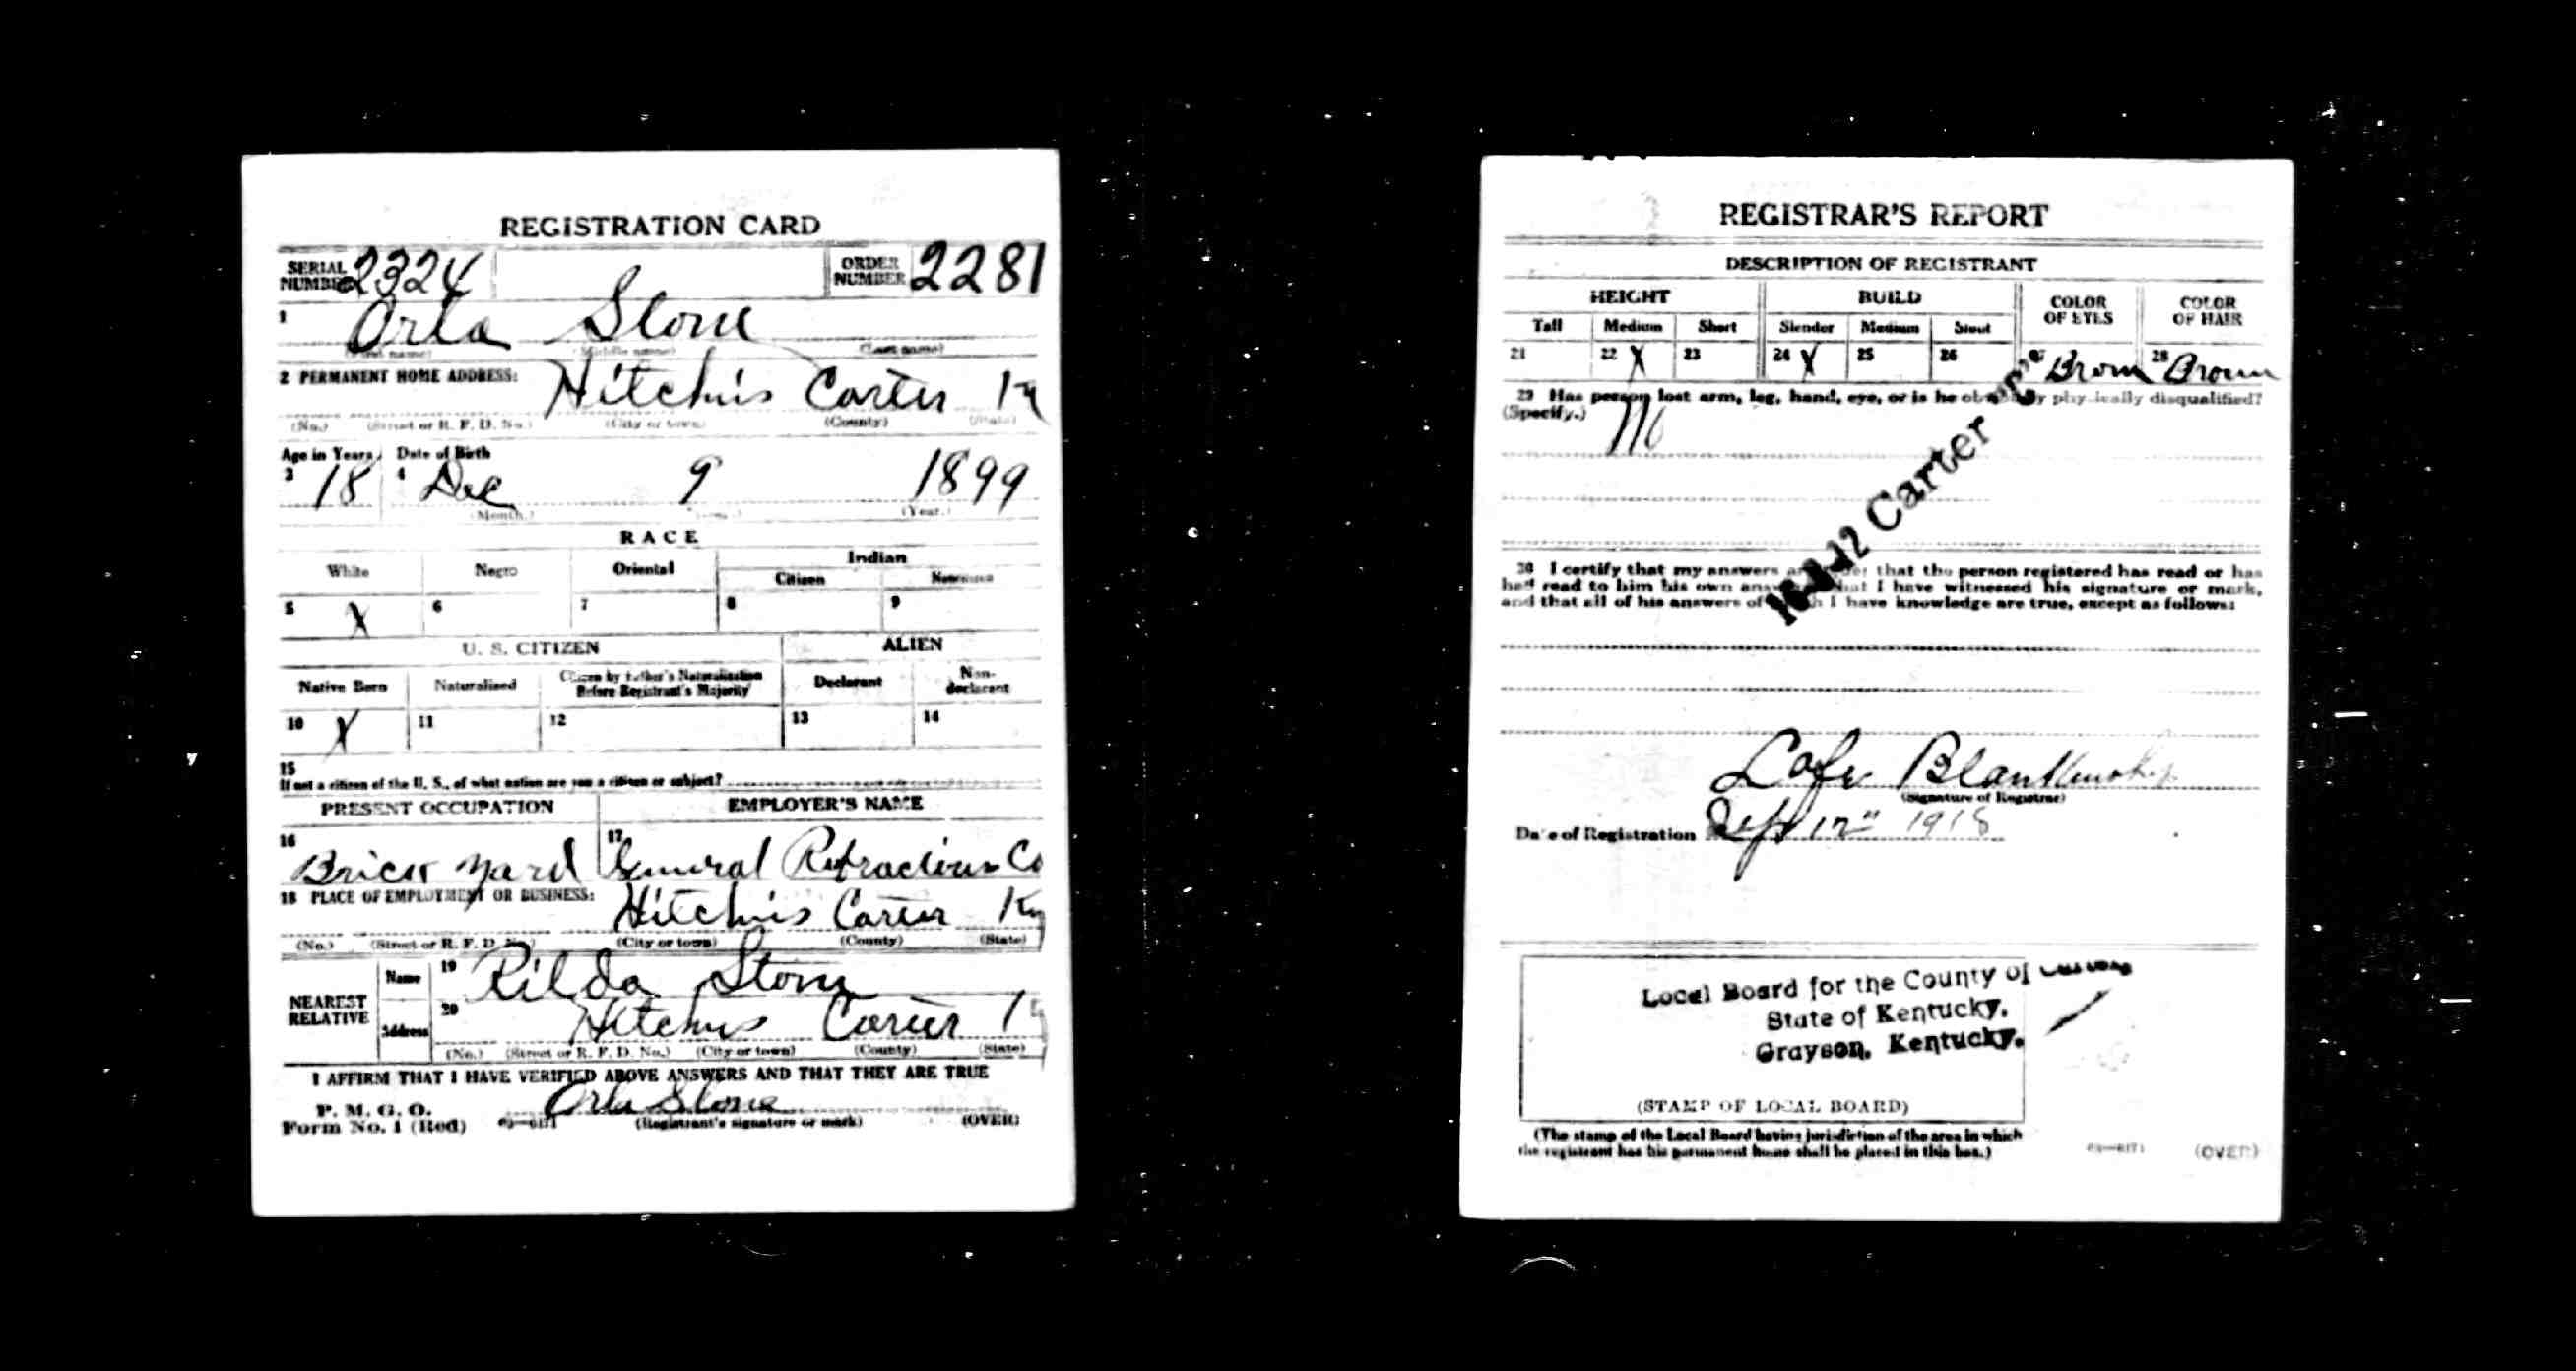 REGISTRATION CARD
SERIAL NUMBER 2324 ORDER NUMBER 2281
1 Orla Slone
(First name) (Middle name) (Last name)
2 PERMANENT HOME ADDRESS: Hitchins Carter Ky
(No.) (Street or R. F. D. No.) (City or town) (County) (State)
Age in Years Date of Birth
3 18 4 Dec 9 1899
(Month.) (Year.)
RACE
White Negro Oriental Indian
Citizen Noncitizen
5 X 6 7 8 9
U. S. CITIZEN ALIEN
Native Born Naturalized Citizen by Father's Naturalization Before Registrant's Majority Declarant Non-declarant
10 X 11 12 13 14
15
If not a citizen of the U. S., of what nation are you a citizen or subject?
PRESENT OCCUPATION EMPLOYER'S NAME
16 Brick yard 17 General Refractories Co
18 PLACE OF EMPLOYMENT OR BUSINESS: Hitchins Carter Ky
(No.) (Street or R. F. D. No.) (City or town) (County) (State)
NEAREST RELATIVE Name 19 Rilda Slone
Address 20 Hitchins Carter
(No.) (Street or R. F. D. No.) (City or town) (County) (State)
I AFFIRM THAT I HAVE VERIFIED ABOVE ANSWERS AND THAT THEY ARE TRUE
P. M. G. O.
Form No. 1 (Red) Orla Slone
(Registrant's signature or mark) (OVER)
REGISTRAR'S REPORT
DESCRIPTION OF REGISTRANT
HEIGHT BUILD COLOR OF EYES COLOR OF HAIR
Tall Medium Short Slender Medium Stout
21 22 X 23 24 X 25 26 Brown 28 Brown
29 Has person lost arm, leg, hand, eye, or is he obviously physically disqualified?
(Specify.)
Carter
30 I certify that my answers are that the person registered has read or has
had read to him his own answers that I have witnessed his signature or mark,
and that all of his answers of which I have knowledge are true, except as follows:
Blankenship
(Signature of Registrar)
Date of Registration Sept 12" 1918
Local Board for the County of Carter
State of Kentucky.
Grayson, Kentucky.
(STAMP OF LOCAL BOARD)
(The stamp of the Local Board having jurisdiction of the area in which
the registrant has his permanent home shall be placed in this box.)
(OVER)